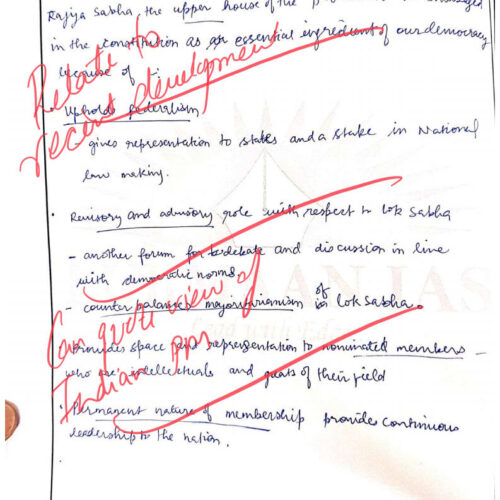 Rajya Sabha, the upper house of the
in the constitution as an essential ingredient of our democracy
because of :
Relate to
recent development
· Upholds federalism
gives representation to states and a stake in National
law making.
· Revisory and advisory role with respect to lok sabha
- another forum for debate and discussion in line
with democratic norms
- counter balances majoritarianism of lok sabha.
Can quote view of
Indian PM
· Provides space and representation to nominated members -
who are intellectuals and greats of their field
· Permanent nature of membership provides continuous
leadership to the nation.